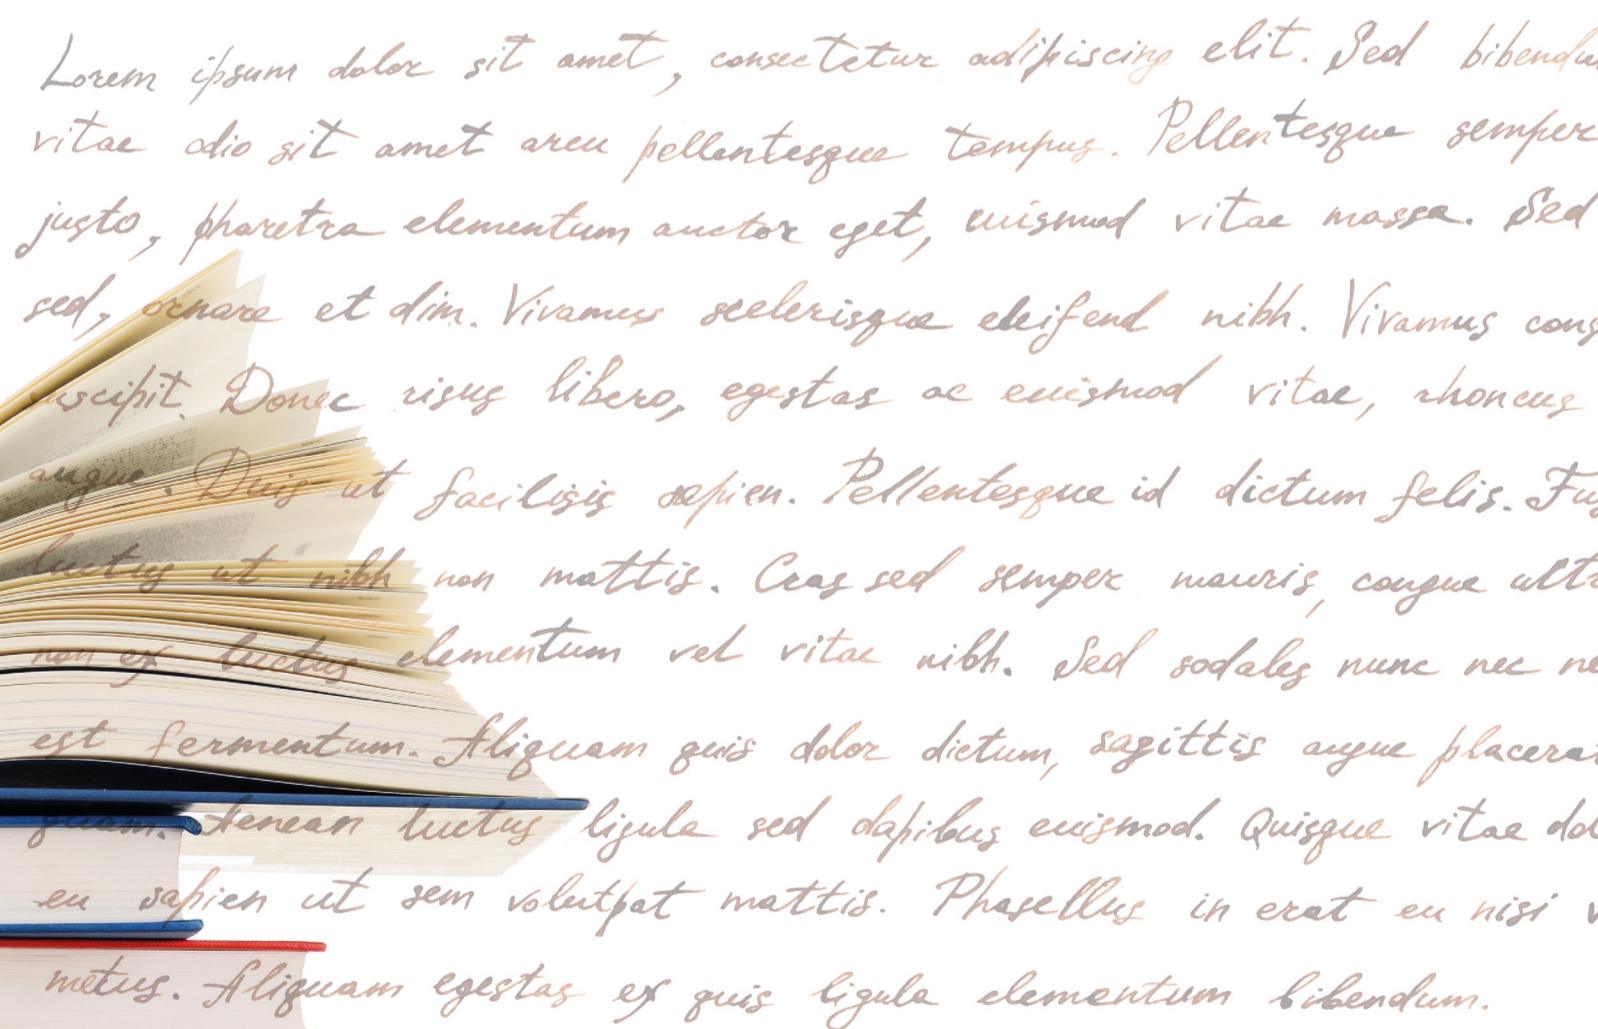 Lorem ipsum dolor sit amet, consectetur adipiscing elit. Sed bibendu
vitae odio sit amet arcu pellentesque tempus. Pellentesque semper
justo, pharetra elementum auctor eget, euismod vitae massa. Sed
sed, ornare et dim. Vivamus scelerisque eleifend nibh. Vivamus cons
suscipit. Donec risus libero, egestas ac euismod vitae, rhoncus
augue. Duis ut facilisis sapien. Pellentesque id dictum felis. Fus
luctus ut nibh non mattis. Cras sed semper mauris, congue ultr
non ex luctus elementum vel vitae nibh. Sed sodales nunc nec ne
est fermentum. Aliquam quis dolor dictum, sagittis augue placerat
quam. Aenean luctus ligula sed dapibus euismod. Quisque vitae dol
eu sapien ut sem volutpat mattis. Phasellus in erat eu nisi v
metus. Aliquam egestas ex quis ligula elementum bibendum.